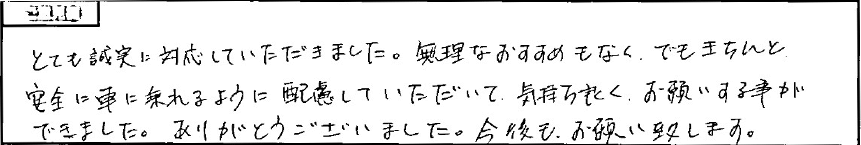 とても誠実に対応していただきました。無理なおすすめもなく、でもきちんと
安全に車に乗れるように配慮していただいて、気持ち良く、お願いする事が
できました。ありがとうございました。今後も、お願い致します。